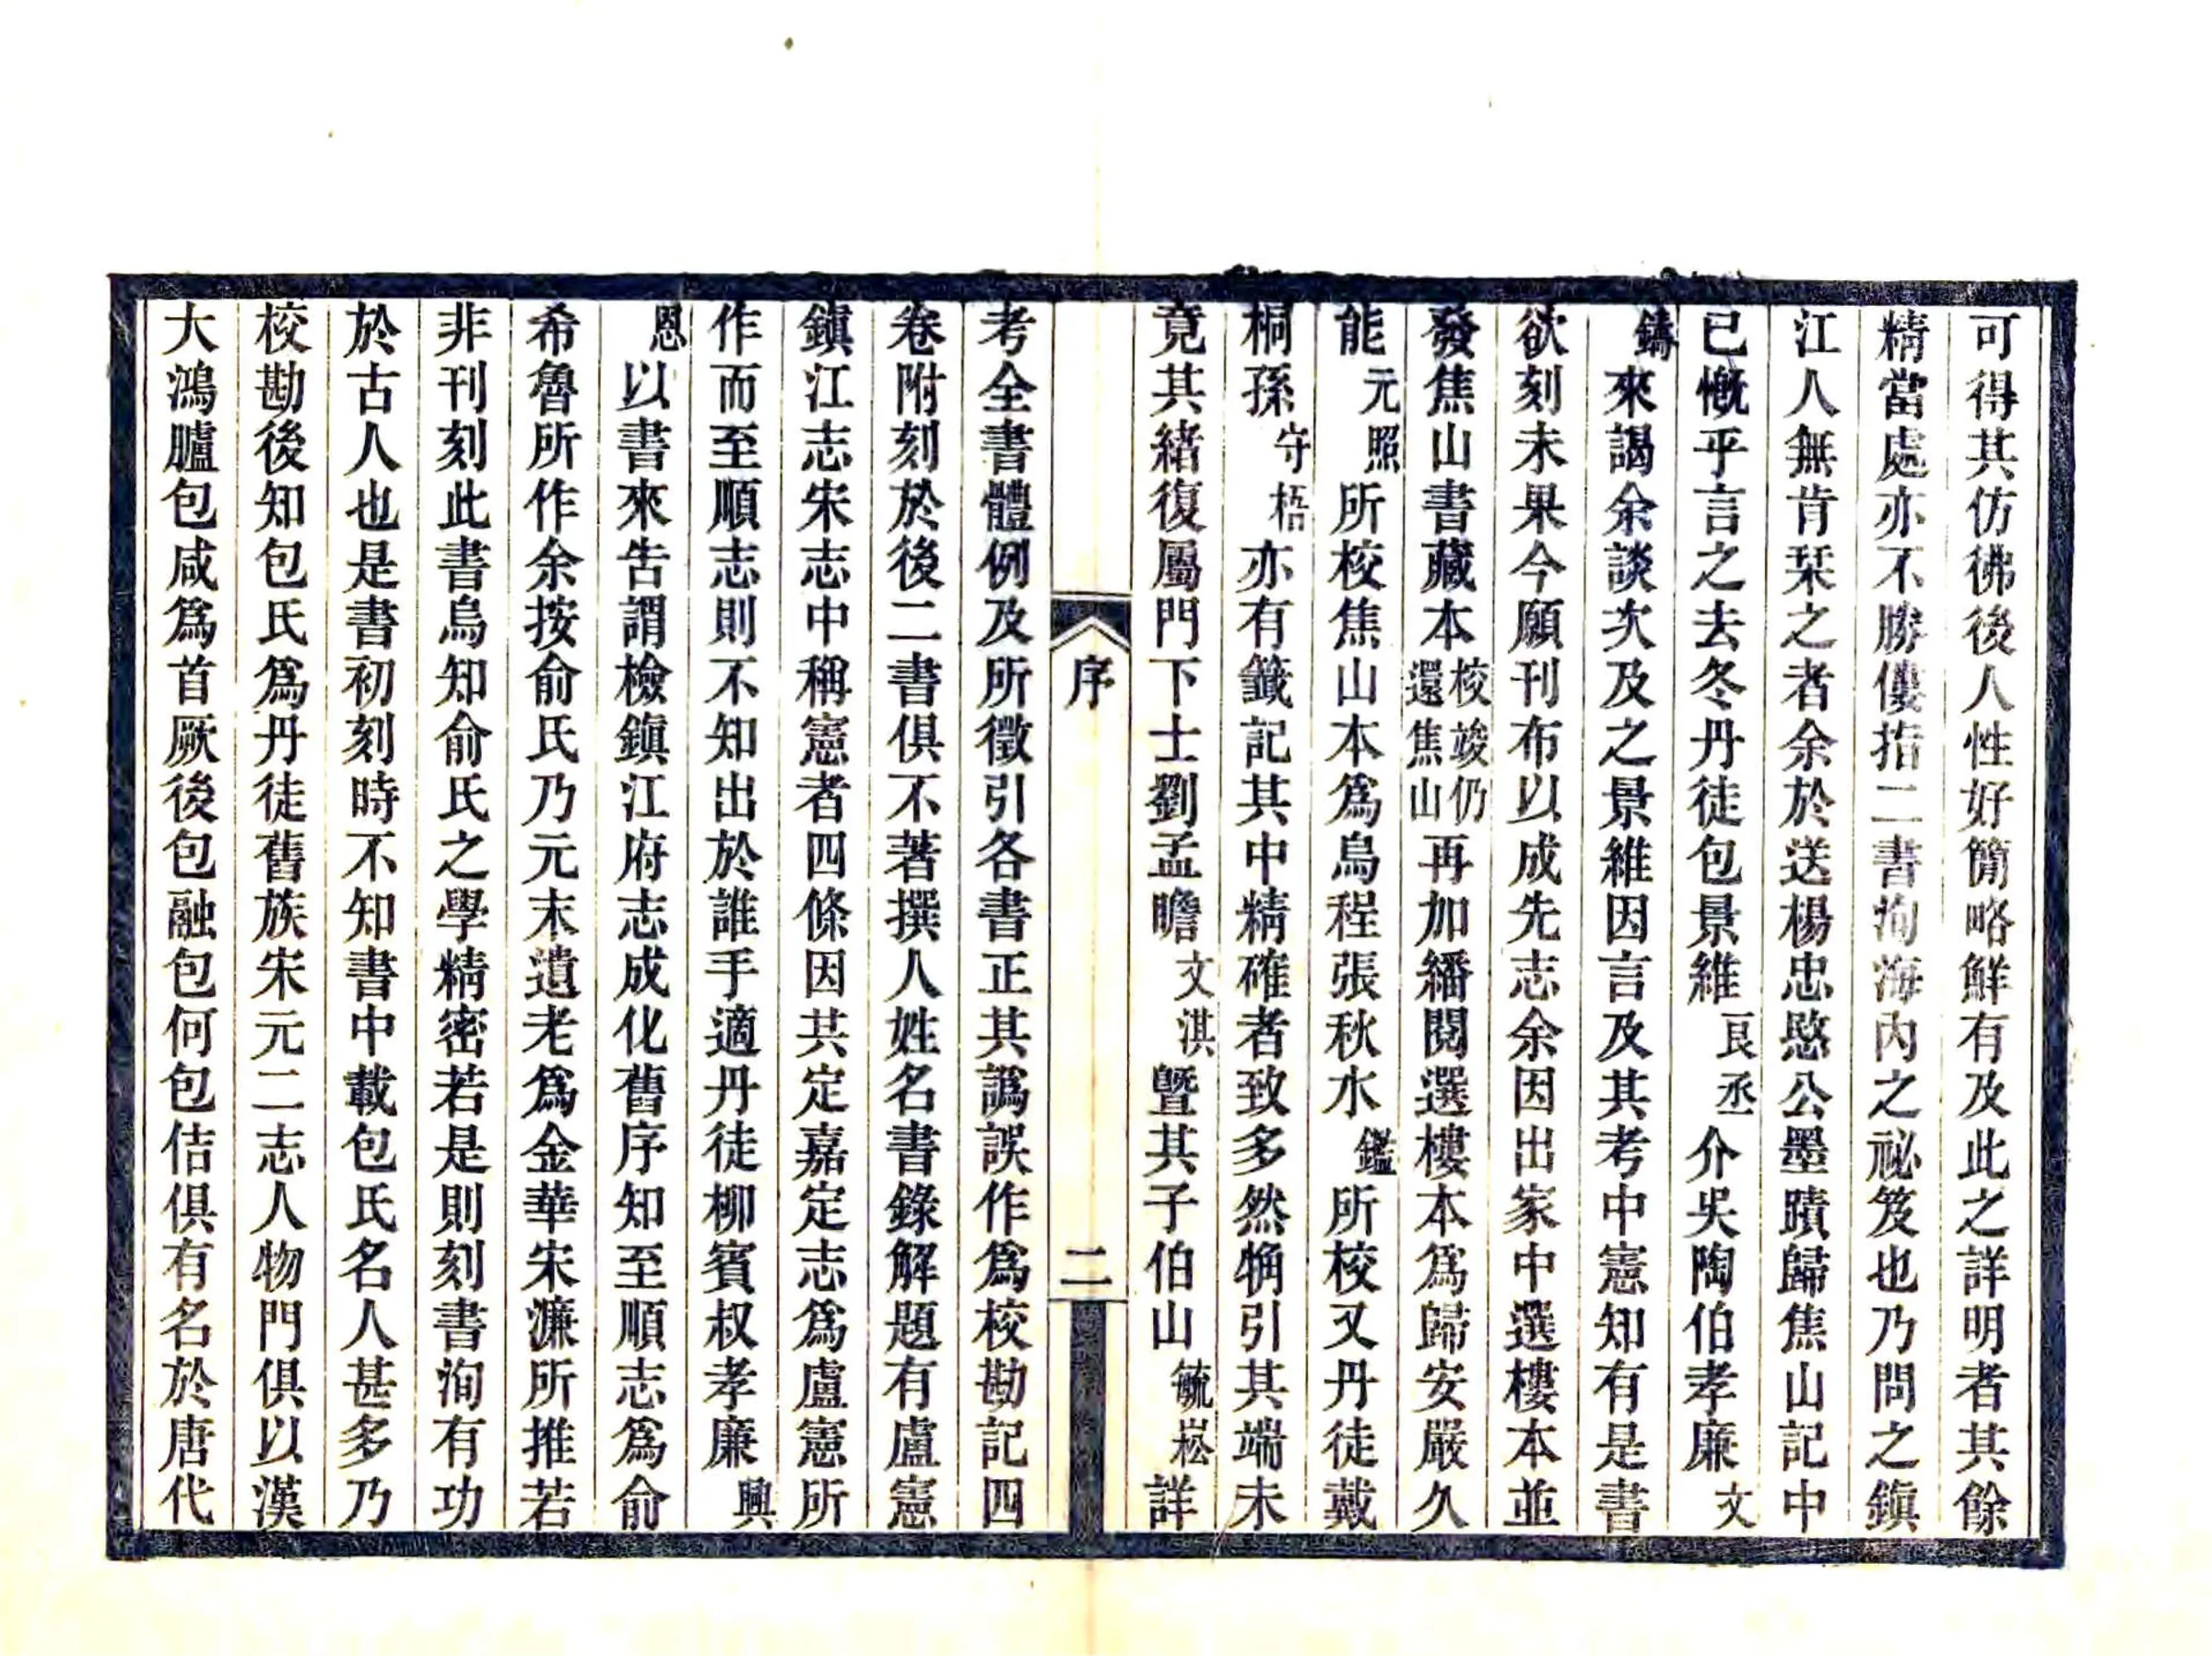 可得其仿彿後人性好簡略鮮有及此之詳明者其餘
精當處亦不勝僂指二書洵海內之祕笈也乃問之鎭
江人無肯栞之者余於送楊忠愍公墨蹟歸焦山記中
已慨乎言之去冬丹徒包景維良丞介吳陶伯孝廉文
鑄來謁余談次及之景維因言及其考中憲知有是書
欲刻未果今願刊布以成先志余因出家中選樓本並
發焦山書藏本校竣仍還焦山再加繙閱選樓本爲歸安嚴久
能元照所校焦山本爲烏程張秋水鑑所校又丹徒戴
桐孫守梧亦有籤記其中精確者致多然觕引其端未
竟其緒復屬門下士劉孟瞻文淇曁其子伯山毓崧詳
序 二
考全書體例及所徵引各書正其譌誤作爲校勘記四
卷附刻於後二書俱不著撰人姓名書錄解題有盧憲
鎭江志宋志中稱憲者四條因共定嘉定志爲盧憲所
作而至順志則不知出於誰手適丹徒柳賓叔孝廉興
恩以書來告謂檢鎭江府志成化舊序知至順志爲俞
希魯所作余按俞氏乃元末遺老爲金華宋濂所推若
非刊刻此書烏知俞氏之學精密若是則刻書洵有功
於古人也是書初刻時不知書中載包氏名人甚多乃
校勘後知包氏爲丹徒舊族宋元二志人物門俱以漢
大鴻臚包咸爲首厥後包融包何包佶俱有名於唐代